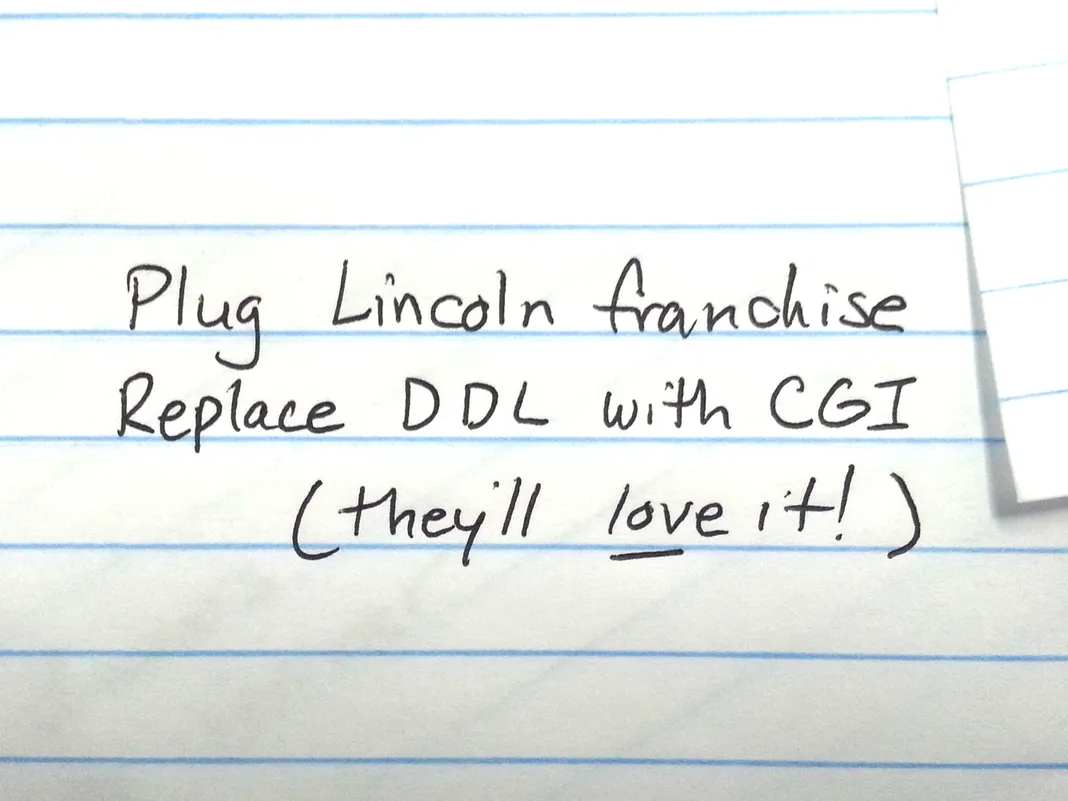 Plug Lincoln franchise
Replace DDL with CGI
(they'll love it!)